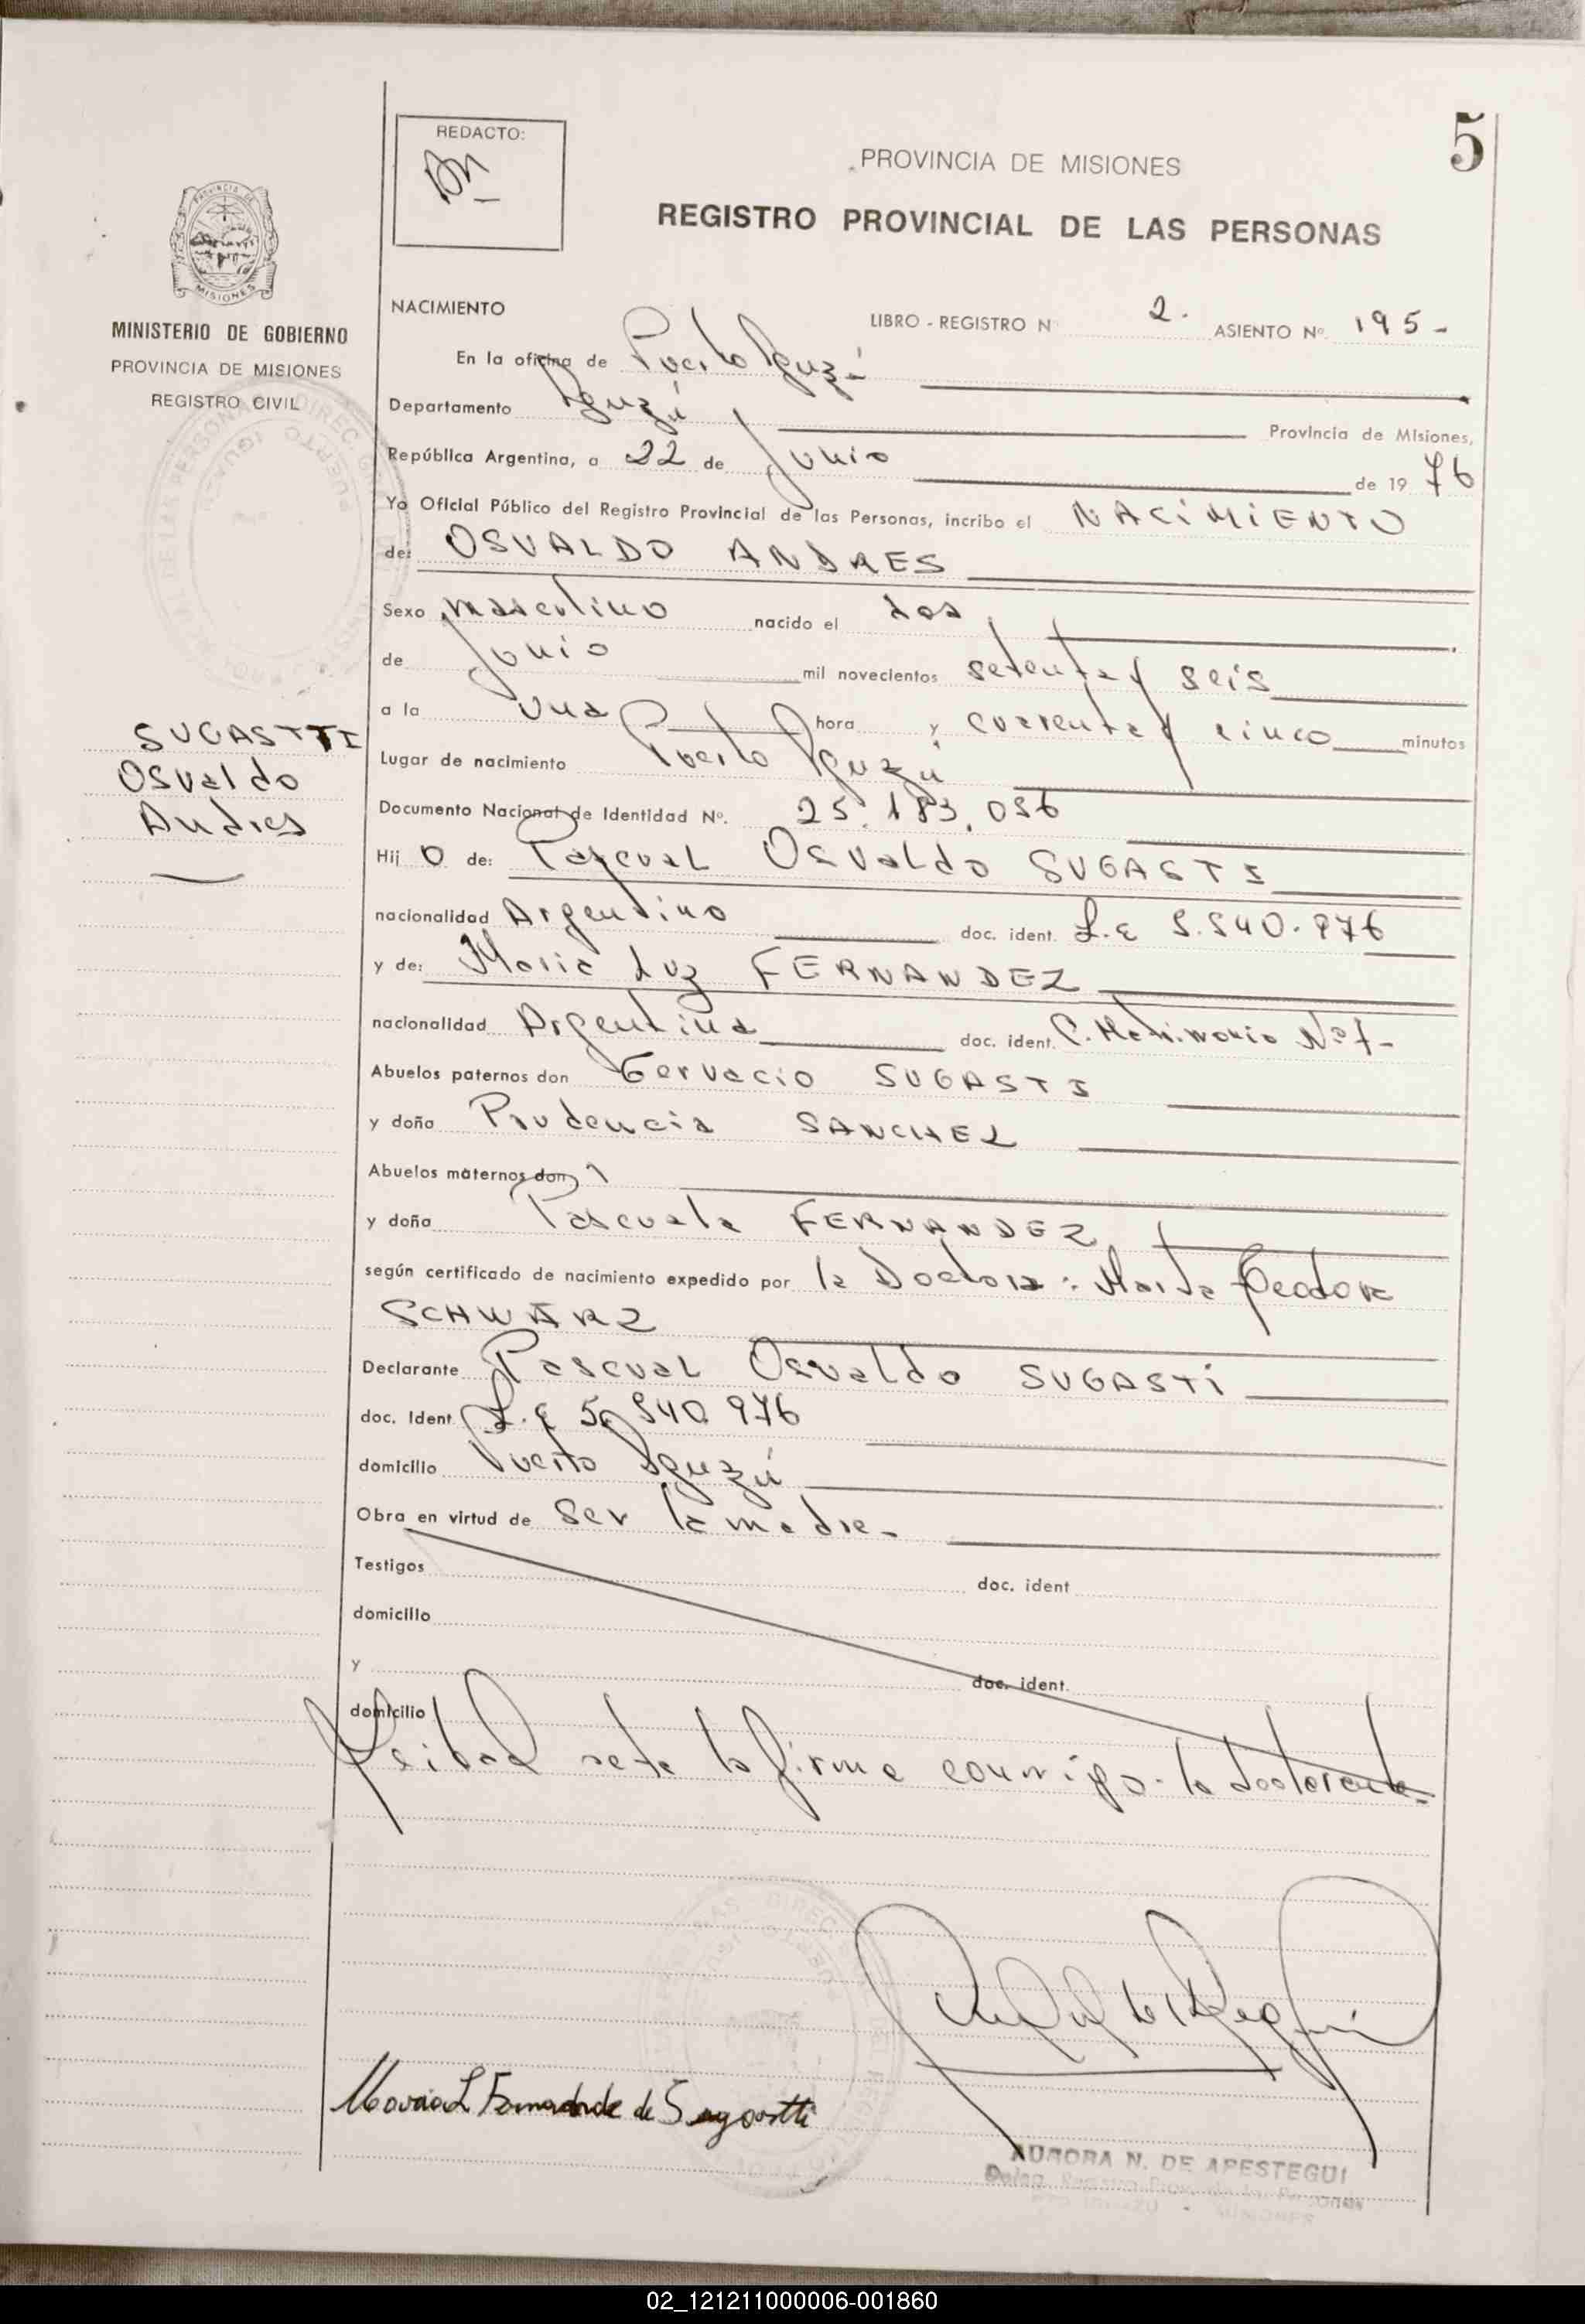 5
REDACTO:
PROVINCIA DE MISIONES
REGISTRO PROVINCIAL DE LAS PERSONAS
MISIONES
MINISTERIO DE GOBIERNO
PROVINCIA DE MISIONES
REGISTRO CIVIL
NACIMIENTO LIBRO - REGISTRO N 2. ASIENTO Nº. 195-
En la oficina de Puerto Iguazú
Departamento Iguazú Provincia de Misiones,
República Argentina, a 22 de Junio de 1976
Yo Oficial Público del Registro Provincial de las Personas, incribo el NACIMIENTO
de: OSVALDO ANDRES
Sexo masculino nacido el dos
de Junio mil novecientos setenta y seis
a la una hora y cuarenta y cinco minutos
SUGASTTI
Osvaldo
Andres
Lugar de nacimiento Puerto Iguazú
Documento Nacional de Identidad Nº. 25.183.056
Hij o de: Pascual Osvaldo SUGASTI
nacionalidad Argentino doc. ident. L.E 5.540.976
y de: Maria Luz FERNANDEZ
nacionalidad Argentina doc. ident. C. Matrimonio Nº 7-
Abuelos paternos don Gervacio SUGASTI
y doña Prudencia SANCHEZ
Abuelos maternos don
y doña Pascuala FERNANDEZ
según certificado de nacimiento expedido por la Doctora: Marta Teodora
SCHWARZ
Declarante Pascual Osvaldo SUGASTI
doc. Ident L.E 5.540.976
domicilio Puerto Iguazú
Obra en virtud de ser la madre-
Testigos doc. ident
domicilio
y doc. ident.
domicilio
Leida acta la firma conmigo la declarante-
Maria L Fernande de Sugastti
AURORA N. DE APESTEGUI
02_121211000006-001860